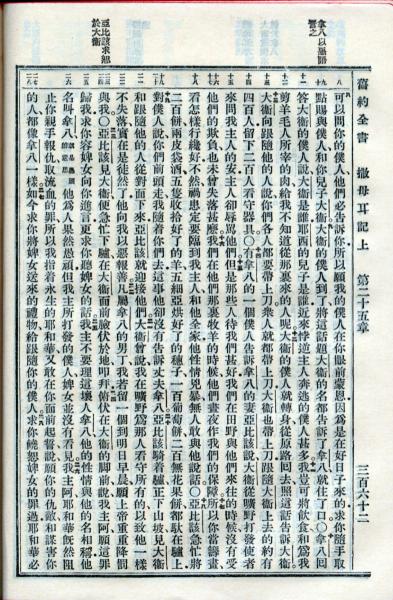 舊約全書 撒母耳記上 第二十五章 三百六十二
拿八以惡語
詈之
亞比該求恕
於大衞
可以問你的僕人他們必告訴你所以願我的僕人在你眼前蒙恩因爲是在好日子來的求你隨手取
點賜與僕人和你兒子大衞大衞的僕人到了將這話題大衞的名都告訴了拿八就住了口〇拿八回
答大衞的僕人說大衞是誰耶西的兒子是誰近來悖逆主人奔逃的僕人甚多我豈可將飲食和爲我
剪羊毛人所宰的肉給我不知道從那裏來的人呢大衞的僕人就轉身從原路回去照這話告訴大衞
大衞向跟隨他的人說你們各人都要帶上刀衆人就都帶上刀大衞也帶上刀跟隨大衞上去的約有
四百人留下二百人看守器具〇有拿八的一個僕人告訴拿八的妻亞比該說大衞從曠野打發使者
來問我主人的安主人卻辱罵他們但是那些人待我們甚好我們在田野與他們來往的時候沒有受
他們的欺負也未曾失落甚麽我們在他們那裏牧羊的時候他們晝夜作我們的保障所以你當籌畫
看怎樣行纔好不然禍患定要臨到我主人和他全家他性情兇暴無人敢與他說話〇亞比該急忙將
二百餅兩皮袋酒五隻收拾好了的羊五細亞烘好了的穗子一百葡萄餅二百無花果餅都馱在驢上
對僕人說你們前頭走我隨着你們去這事他卻沒有告訴丈夫拿八亞比該騎着驢正下山坡見大衞
和跟隨他的人從對面下來亞比該就迎接他們大衞曾說我在曠野爲那人看守所有的以致他一樣
不失落實在是徒然了他向我以惡報善凡屬拿八的男丁我若留一個到明日早晨願上帝重重降罰
與我〇亞比該見大衞便急忙下驢在大衞面前臉伏於地叩拜俯伏在大衞的脚前說我主阿願這罪
歸我求你容婢女向你進言更求你聽婢女的話我主不要理這壞人拿八他的性情與他的名相稱他
名叫拿八就是愚頑的意思他爲人果然愚頑但我主所打發的僕人婢女並沒有看見我主阿耶和華旣然阻
止你親手報仇取流血的罪所以我指着永生的耶和華又敢在你面前起誓說願你的仇敵和謀害你
的人都像拿八一樣如今求你將婢女送來的禮物給跟隨你的僕人求你饒恕婢女的罪過耶和華必